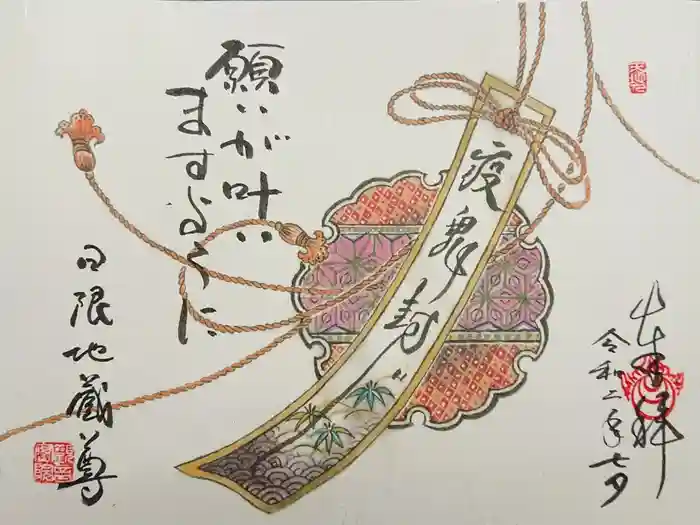 奉拝
令和二年七夕
疫鬼封
願いが叶い
ますように
日限地蔵尊